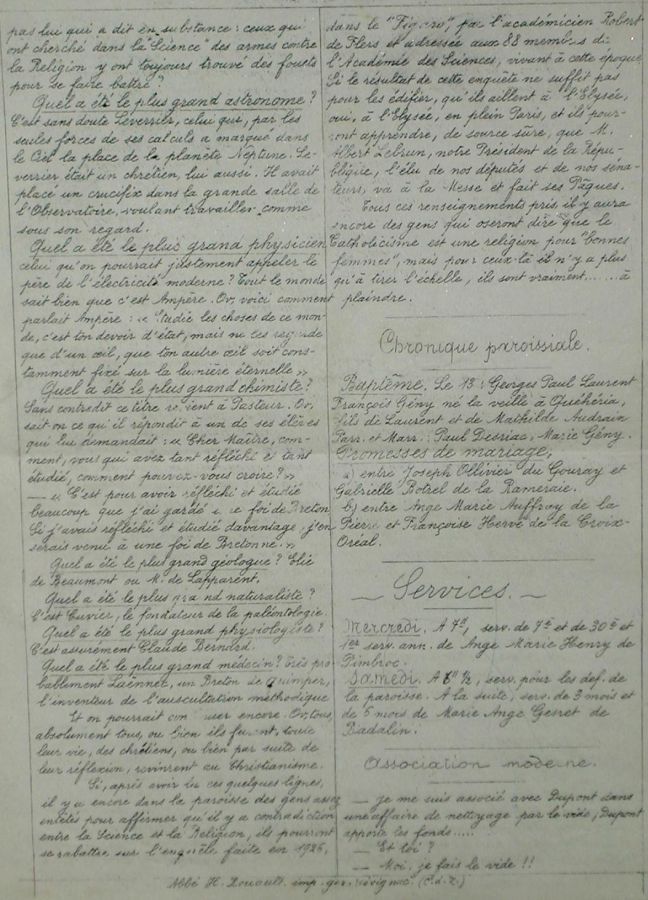 pas lui qui a dit en substance : ceux qui
ont cherché dans la Science des armes contre
la Religion y ont toujours trouvé des fouets
pour se faire battre ?
Quel a été le plus grand astronome ?
C'est sans doute Leverrier, celui que, par les
seules forces de ses calculs a marqué dans
le Ciel la place de la planète Neptune. Le-
verrier était un chrétien, lui aussi. Il avait
placé un crucifix dans la grande salle de
l'Observatoire, voulant travailler comme
sous son regard.
Quel a été le plus grand physicien
celui qu'on pourrait justement appeler le
père de l'électricité moderne ? Tout le monde
sait bien que c'est Ampère. Or, voici comment
parlait Ampère : « Etudie les choses de ce mon-
de, c'est ton devoir d'état, mais ne les regarde
que d'un œil, que ton autre œil soit cons-
tamment fixé sur la lumière éternelle »
Quel a été le plus grand chimiste ?
Sans contredit ce titre revient à Pasteur. Or,
sait on ce qu'il répondit à un de ses élèves
qui lui demandait : « Cher Maître, com-
ment, vous qui avez tant réfléchi et tant
étudié, comment pouvez-vous croire ? »
— « C'est pour avoir réfléchi et étudié
beaucoup que j'ai gardé une foi de Breton
Si j'avais réfléchi et étudié davantage, j'en
serais venu à une foi de Bretonne. »
Quel a été le plus grand géologue ? Elie
de Beaumont ou M. de Lapparent.
Quel a été le plus grand naturaliste ?
C'est Cuvier, le fondateur de la paléontologie.
Quel a été le plus grand physiologiste ?
C'est assurément Claude Bernard.
Quel a été le plus grand médecin ? Très pro
bablement Laënnec, un Breton de Quimper,
l'inventeur de l'auscultation méthodique
Et on pourrait continuer encore. Or, tous,
absolument tous, ou bien ils furent, toute
leur vie, des chrétiens, ou bien par suite de
leur réflexion, revinrent au Christianisme.
Si, après avoir lu ces quelques lignes,
il y a encore dans la paroisse des gens assez
entêtés pour affirmer qu'il y a contradiction
entre la Science et la Religion, ils pourront
se rabattre sur l'enquête faite en 1926,
dans le "Figaro", par l'académicien Robert
de Flers et adressée aux 88 membres de
l'Académie des Sciences, vivant à cette époque
Si le résultat de cette enquête ne suffit pas
pour les édifier, qu'ils aillent à l'Elysée,
oui, à l'Elysée, en plein Paris, et ils pour-
ront apprendre, de source sûre, que M.
Albert Lebrun, notre Président de la Répu-
blique, l'élu de nos députés et de nos séna-
teurs, va à la Messe et fait ses Pâques.
Tous ces renseignements pris, il y aura
encore des gens qui oseront dire que le
Catholicisme est une religion pour "bonnes
femmes", mais pour ceux-là il n'y a plus
qu'à tirer l'échelle, ils sont vraiment ...... à
plaindre.
Chronique paroissiale.
Baptême. Le 13 : Georges Paul Laurent
François Gény né la veille à Quéhéria,
fils de Laurent et de Mathilde Audrain
Parr. et Marr. : Paul Desriac, Marie Gény.
Promesses de mariage,
a) entre Joseph Ollivier du Gouray et
Gabrielle Botrel de la Rameraie.
b) entre Ange Marie Auffray de la
Pierre et Françoise Hervé de la Croix-
Oréal.
— Services. —
Mercredi. A 7h, serv. de 7e et de 30e et
1er serv. ann. de Ange Marie Henry de
Bimbroc.
Samedi. A 6h ½, serv. pour les def. de
la paroisse. A la suite, serv. de 3 mois et
de 5 mois de Marie Ange Gesret de
Badalin.
Association moderne.
— je me suis associé avec Dupont dans
une affaire de nettoyage par le vide ; Dupont
apporte les fonds .....
— Et toi ?
— Moi, je fais le vide !!
Abbé H. Rouault, imp. ger. Sévignac (C.d.N.)